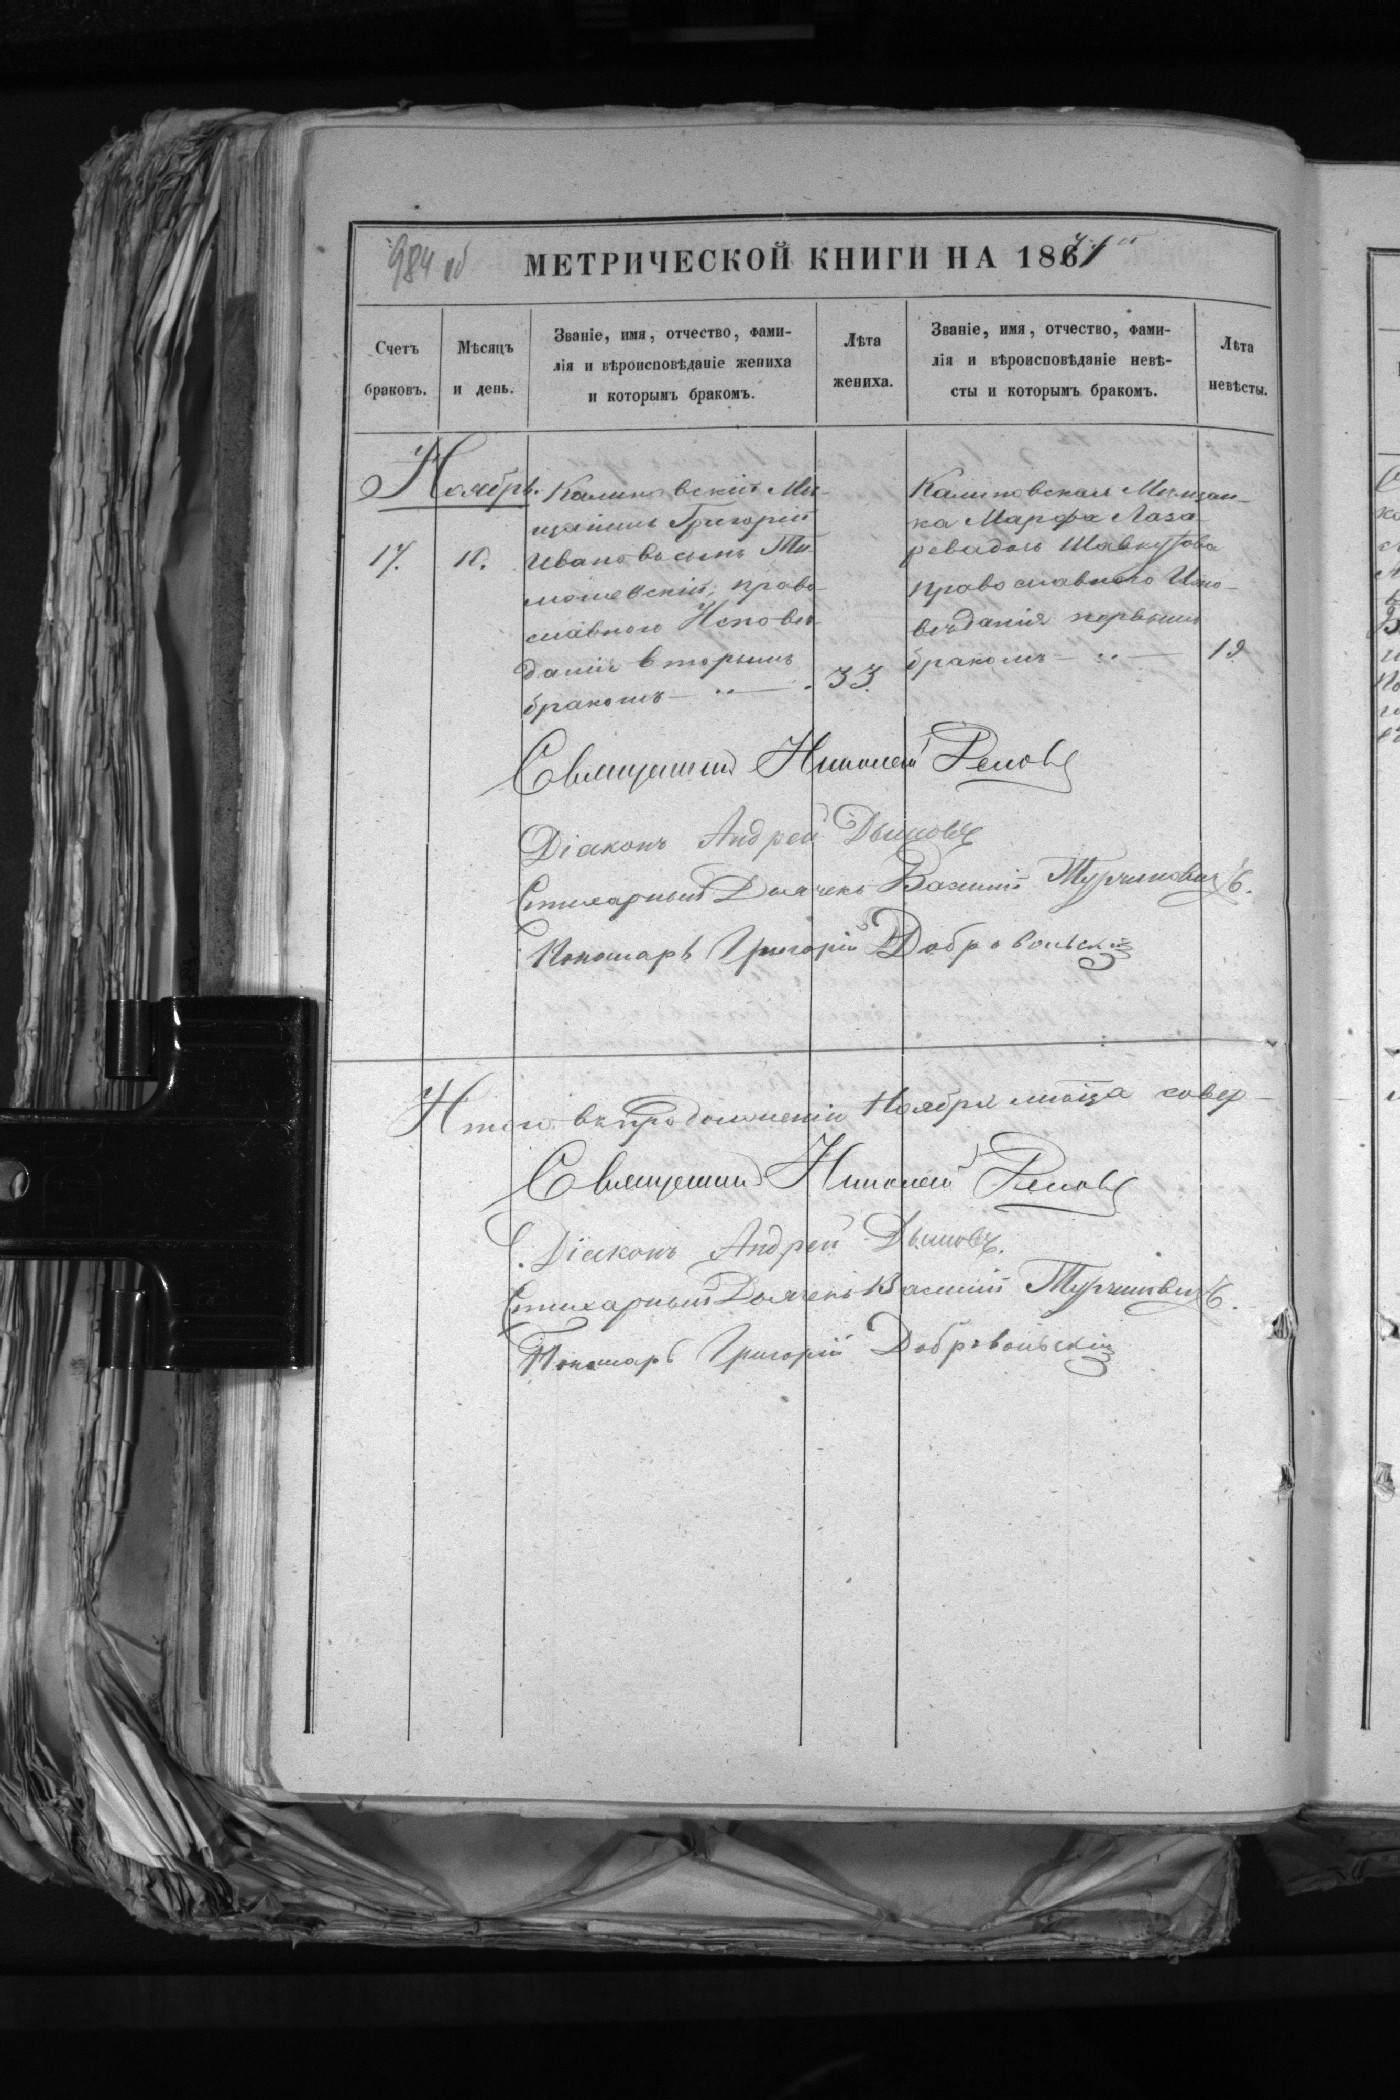 984 об
МЕТРИЧЕСКОЙ КНИГИ НА 1871
Счетъ браковъ.
Мѣсяцъ и день.
Званіе, имя, отчество, фами-
лія и вѣроисповѣданіе жениха
и которымъ бракомъ.
Лѣта жениха.
Званіе, имя, отчество, фами-
лія и вѣроисповѣданіе невѣ-
сты и которымъ бракомъ.
Лѣта невѣсты.
Ноябрь.
17.
10.
Калиновскій Мѣ-
щанинъ Григорій
Ивановъ сынъ Ти-
мошевскій, право-
славнаго Исповѣ-
данія вторымъ
бракомъ
33.
Калиновская Мѣщан-
ка Марфа Лаза-
рева дочь
православнаго Испо-
вѣданія первымъ
бракомъ
19.
Священникъ Николай
Діаконъ Андрей Дымовъ
Стихарный Дьячекъ Василій Турчиновичъ.
Пономарь Григорій Добровольскій
Итого въ продолженіи Ноября мѣсяца совер-
Священникъ Николай
Діаконъ Андрей Дымовъ.
Стихарный Дьячекъ Василій Турчиновичъ.
Пономарь Григорій Добровольскій